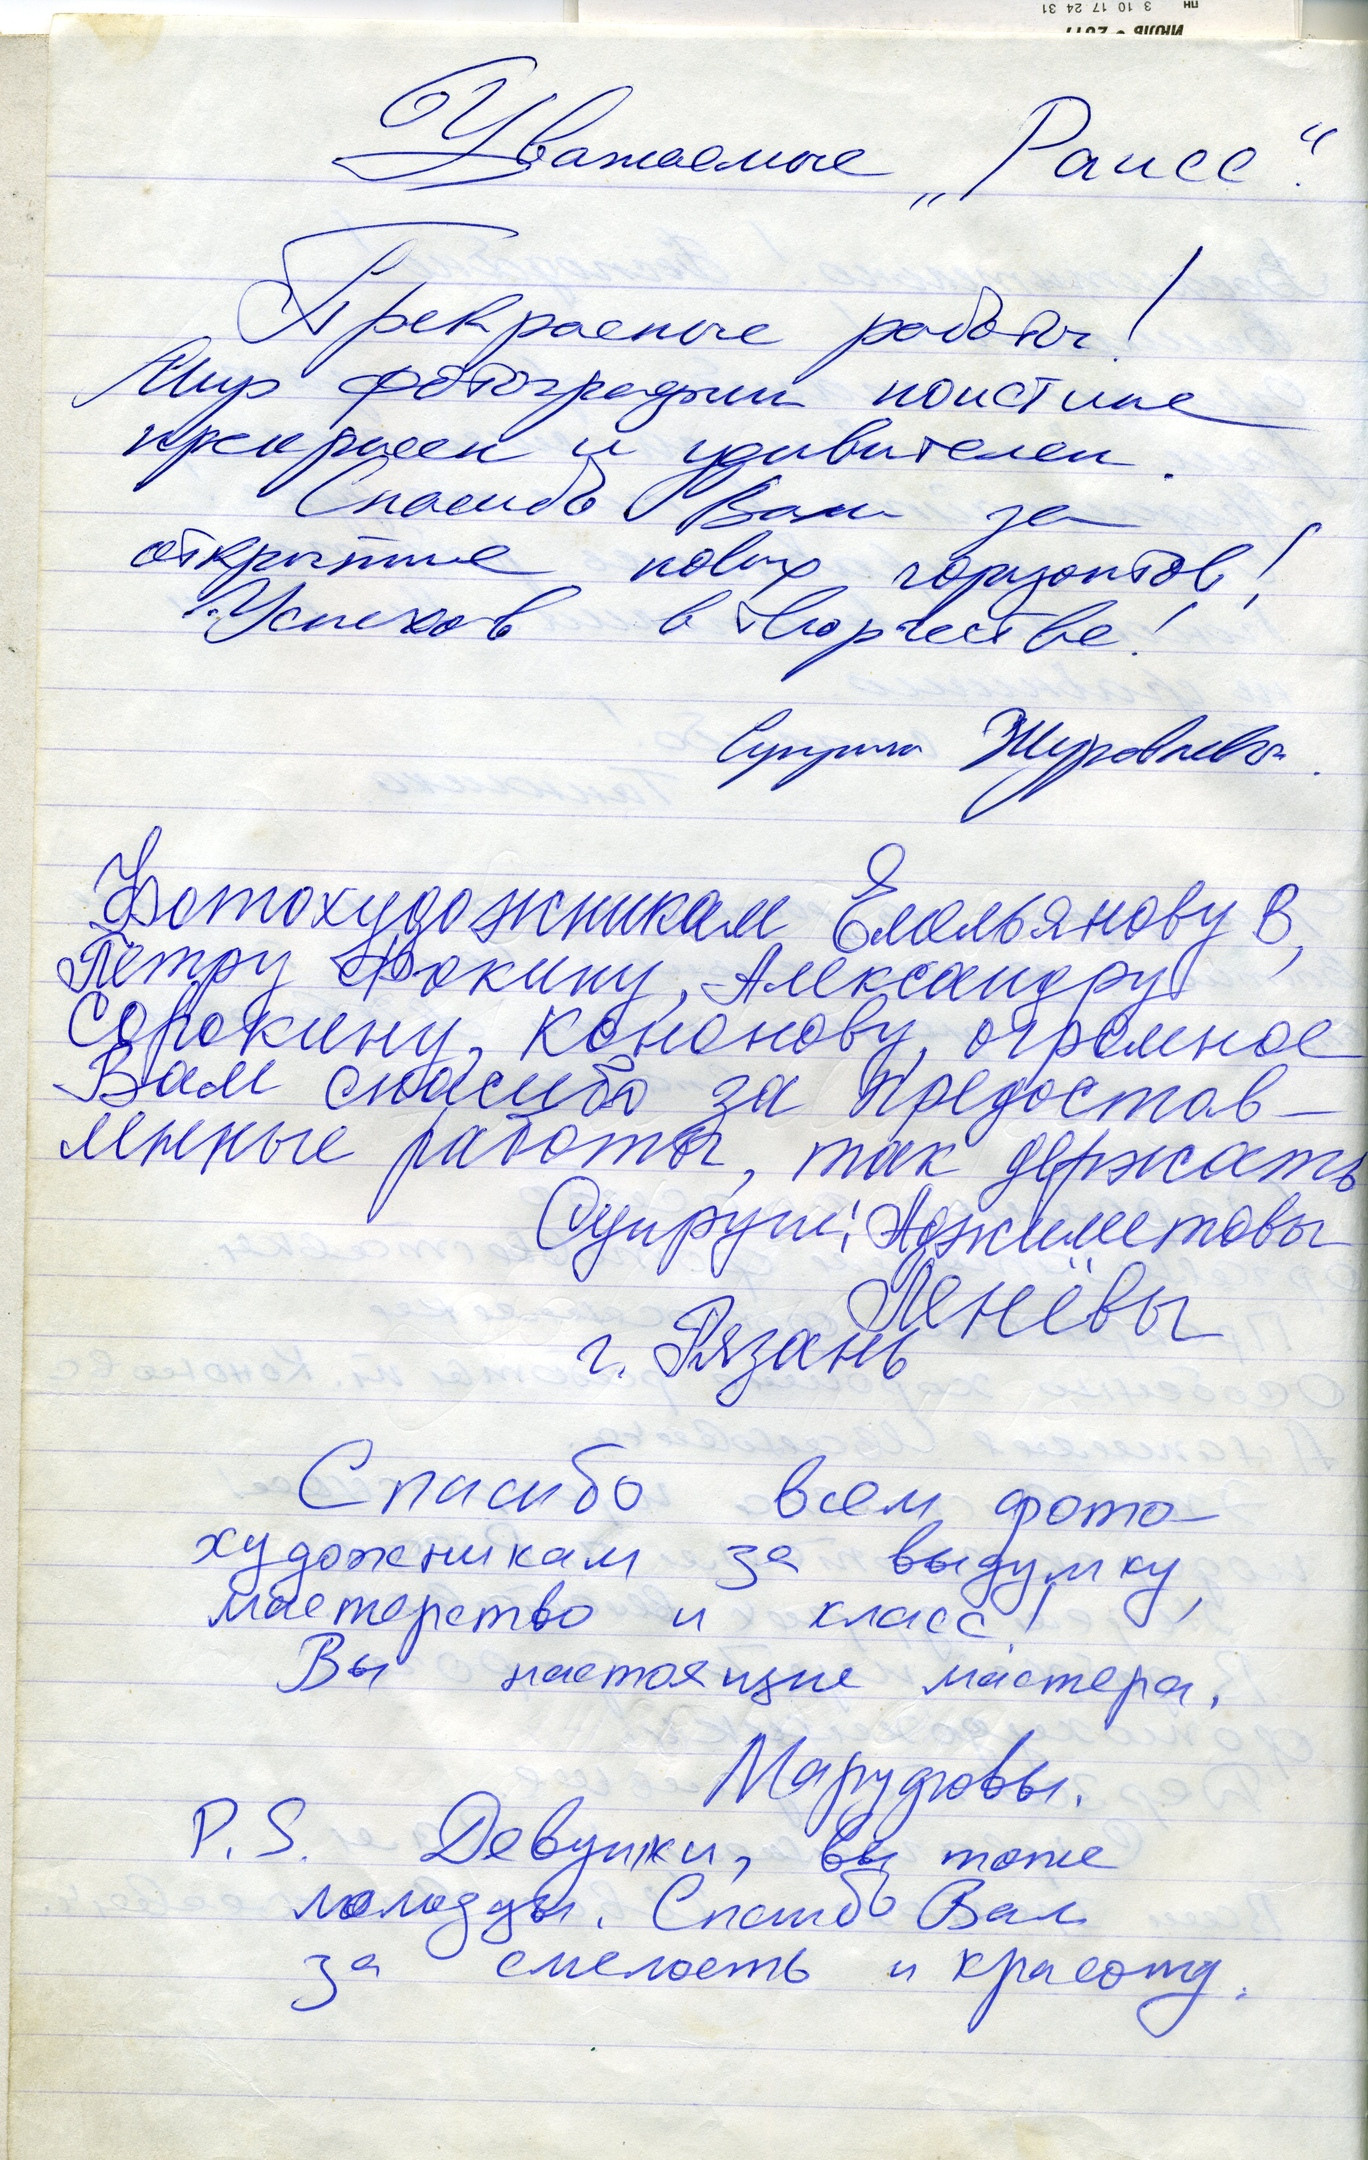 пн 3 10 17 24 31
ИЮЛЬ • 2017
Уважаемые „Раисс“.
Прекрасные работы!
Мир фотографии поистине
прекрасен и удивителен.
Спасибо Вам за
открытие новых горизонтов!
Успехов в творчестве!
Супруги Журавлевы.
Фотохудожникам Емельянову В,
Петру Фокину, Александру
Сорокину, Кононову, огромное
Вам спасибо за предостав-
ленные работы, так держать
Супруги: Аджиметовы
Пенёвы
г. Рязань
Спасибо всем фото-
художникам за выдумку,
мастерство и класс!
Вы настоящие мастера.
Марудовы.
P.S. Девушки, вы тоже
молодцы. Спасибо Вам
за смелость и красоту.